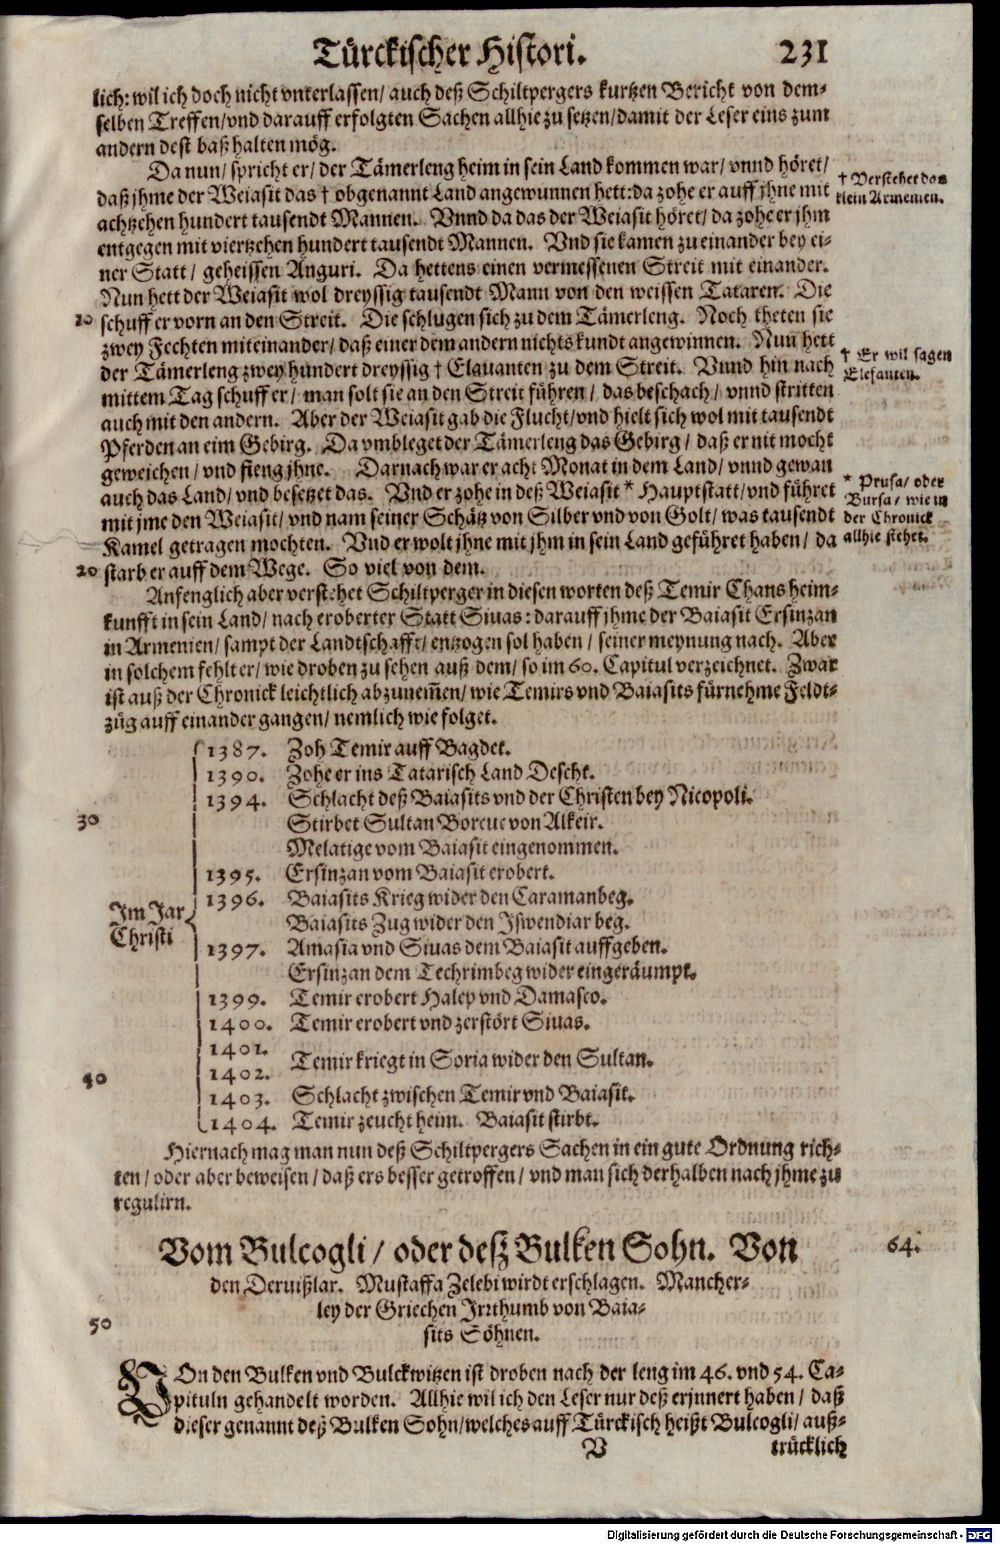 Türckischer Histori. 231
lich: wil ich doch nicht vnterlassen/ auch deß Schiltpergers kurtzen Bericht von dem-
selben Treffen/ vnd darauff erfolgten Sachen allhie zu setzen/ damit der Leser eins zum
andern dest baß halten mög.
Da nun/ spricht er/ der Tämerleng heim in sein Land kommen war/ vnnd höret/
† Verstehet das
daß jhme der Weiasit das † obgenannt Land angewunnen hett: da zohe er auff jhne mit
klein Armenien.
achtzehen hundert tausendt Mannen. Vnnd da das der Weiasit höret/ da zohe er jhm
entgegen mit viertzehen hundert tausendt Mannen. Vnd sie kamen zu einander bey ei-
ner Statt/ geheissen Anguri. Da hettens einen vermessenen Streit mit einander.
Nun hett der Weiasit wol dreyssig tausendt Mann von den weissen Tataren. Die
10 schuff er vorn an den Streit. Die schlugen sich zu dem Tämerleng. Noch theten sie
zwey Fechten miteinander/ daß einer dem andern nichts kundt angewinnen. Nun hett
† Er wil sagen
der Tämerleng zwey hundert dreyssig † Elauanten zu dem Streit. Vnnd hin nach
Elefanten.
mittem Tag schuff er/ man solt sie an den Streit führen/ das beschach/ vnnd stritten
auch mit den andern. Aber der Weiasit gab die Flucht/ vnd hielt sich wol mit tausendt
Pferden an eim Gebirg. Da vmbleget der Tämerleng das Gebirg/ daß er nit mocht
geweichen/ vnd fieng jhne. Darnach war er acht Monat in dem Land/ vnnd gewan
auch das Land/ vnd besetzet das. Vnd er zohe in deß Weiasit * Hauptstatt/ vnd führet
* Prusa/ oder
Bursa/ wie in
mit jme den Weiasit/ vnd nam seiner Schätz von Silber vnd von Golt/ was tausendt
der Chronick
Kamel getragen mochten. Vnd er wolt jhne mit jhm in sein Land geführet haben/ da
allhie stehet.
20 starb er auff dem Wege. So viel von dem.
Anfenglich aber verstehet Schiltperger in diesen worten deß Temir Chans heim-
kunfft in sein Land/ nach eroberter Statt Siuas: darauff jhme der Baiasit Ersinzan
in Armenien/ sampt der Landtschafft/ entzogen sol haben/ seiner meynung nach. Aber
in solchem fehlt er/ wie droben zu sehen auß dem/ so im 60. Capitul verzeichnet. Zwar
ist auß der Chronick leichtlich abzunem̃en/ wie Temirs vnd Baiasits fürnehme Feldt-
züg auff einander gangen/ nemlich wie folget.
1387. Zoh Temir auff Bagdet.
1390. Zohe er ins Tatarisch Land Descht.
1394. Schlacht deß Baiasits vnd der Christen bey Nicopoli.
30 Stirbet Sultan Borcuc von Alkeir.
Melatige vom Baiasit eingenommen.
1395. Ersinzan vom Baiasit erobert.
1396. Baiasits Krieg wider den Caramanbeg.
Im Jar
Christi
Baiasits Zug wider den Iswendiar beg.
1397. Amasia vnd Siuas dem Baiasit auffgeben.
Ersinzan dem Techrimbeg wider eingeräumpt.
1399. Temir erobert Halep vnd Damasco.
1400. Temir erobert vnd zerstört Siuas.
1401.
Temir kriegt in Soria wider den Sultan.
40 1402.
1403. Schlacht zwischen Temir vnd Baiasit.
1404. Temir zeucht heim. Baiasit stirbt.
Hiernach mag man nun deß Schiltpergers Sachen in ein gute Ordnung rich-
ten/ oder aber beweisen/ daß ers besser getroffen/ vnd man sich derhalben nach jhme zu
regulirn.
Vom Bulcogli/ oder deß Bulken Sohn. Von 64.
den Deruißlar. Mustaffa Zelebi wirdt erschlagen. Mancher-
ley der Griechen Irrthumb von Baia-
50 sits Söhnen.
VOn den Bulken vnd Bulckwitzen ist droben nach der leng im 46. vnd 54. Ca-
pituln gehandelt worden. Allhie wil ich den Leser nur deß erjnnert haben/ daß
dieser genannt deß Bulken Sohn/ welches auff Türckisch heißt Bulcogli/ auß-
V trücklich
Digitalisierung gefördert durch die Deutsche Forschungsgemeinschaft - DFG